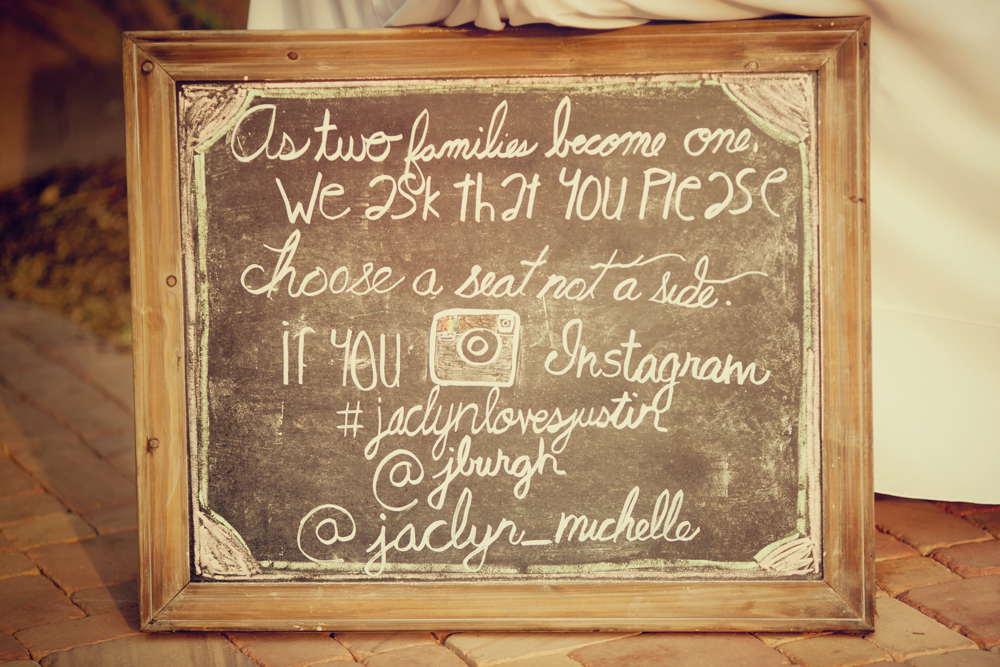 As two families become one,
We ask that you please
choose a seat not a side.
if you Instagram
#jaclynlovesjustin
@jburgh
@jaclyn_michelle